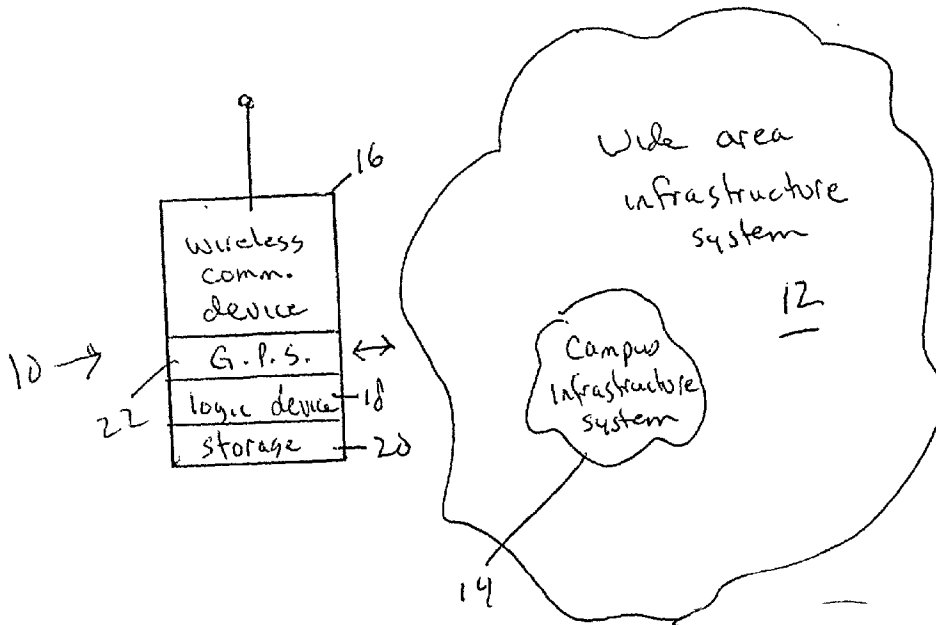 16
wireless
comm.
device
G.P.S.
logic device
storage
10
22
18
20
Wide area
infrastructure
system
12
Campus
Infrastructure
system
14